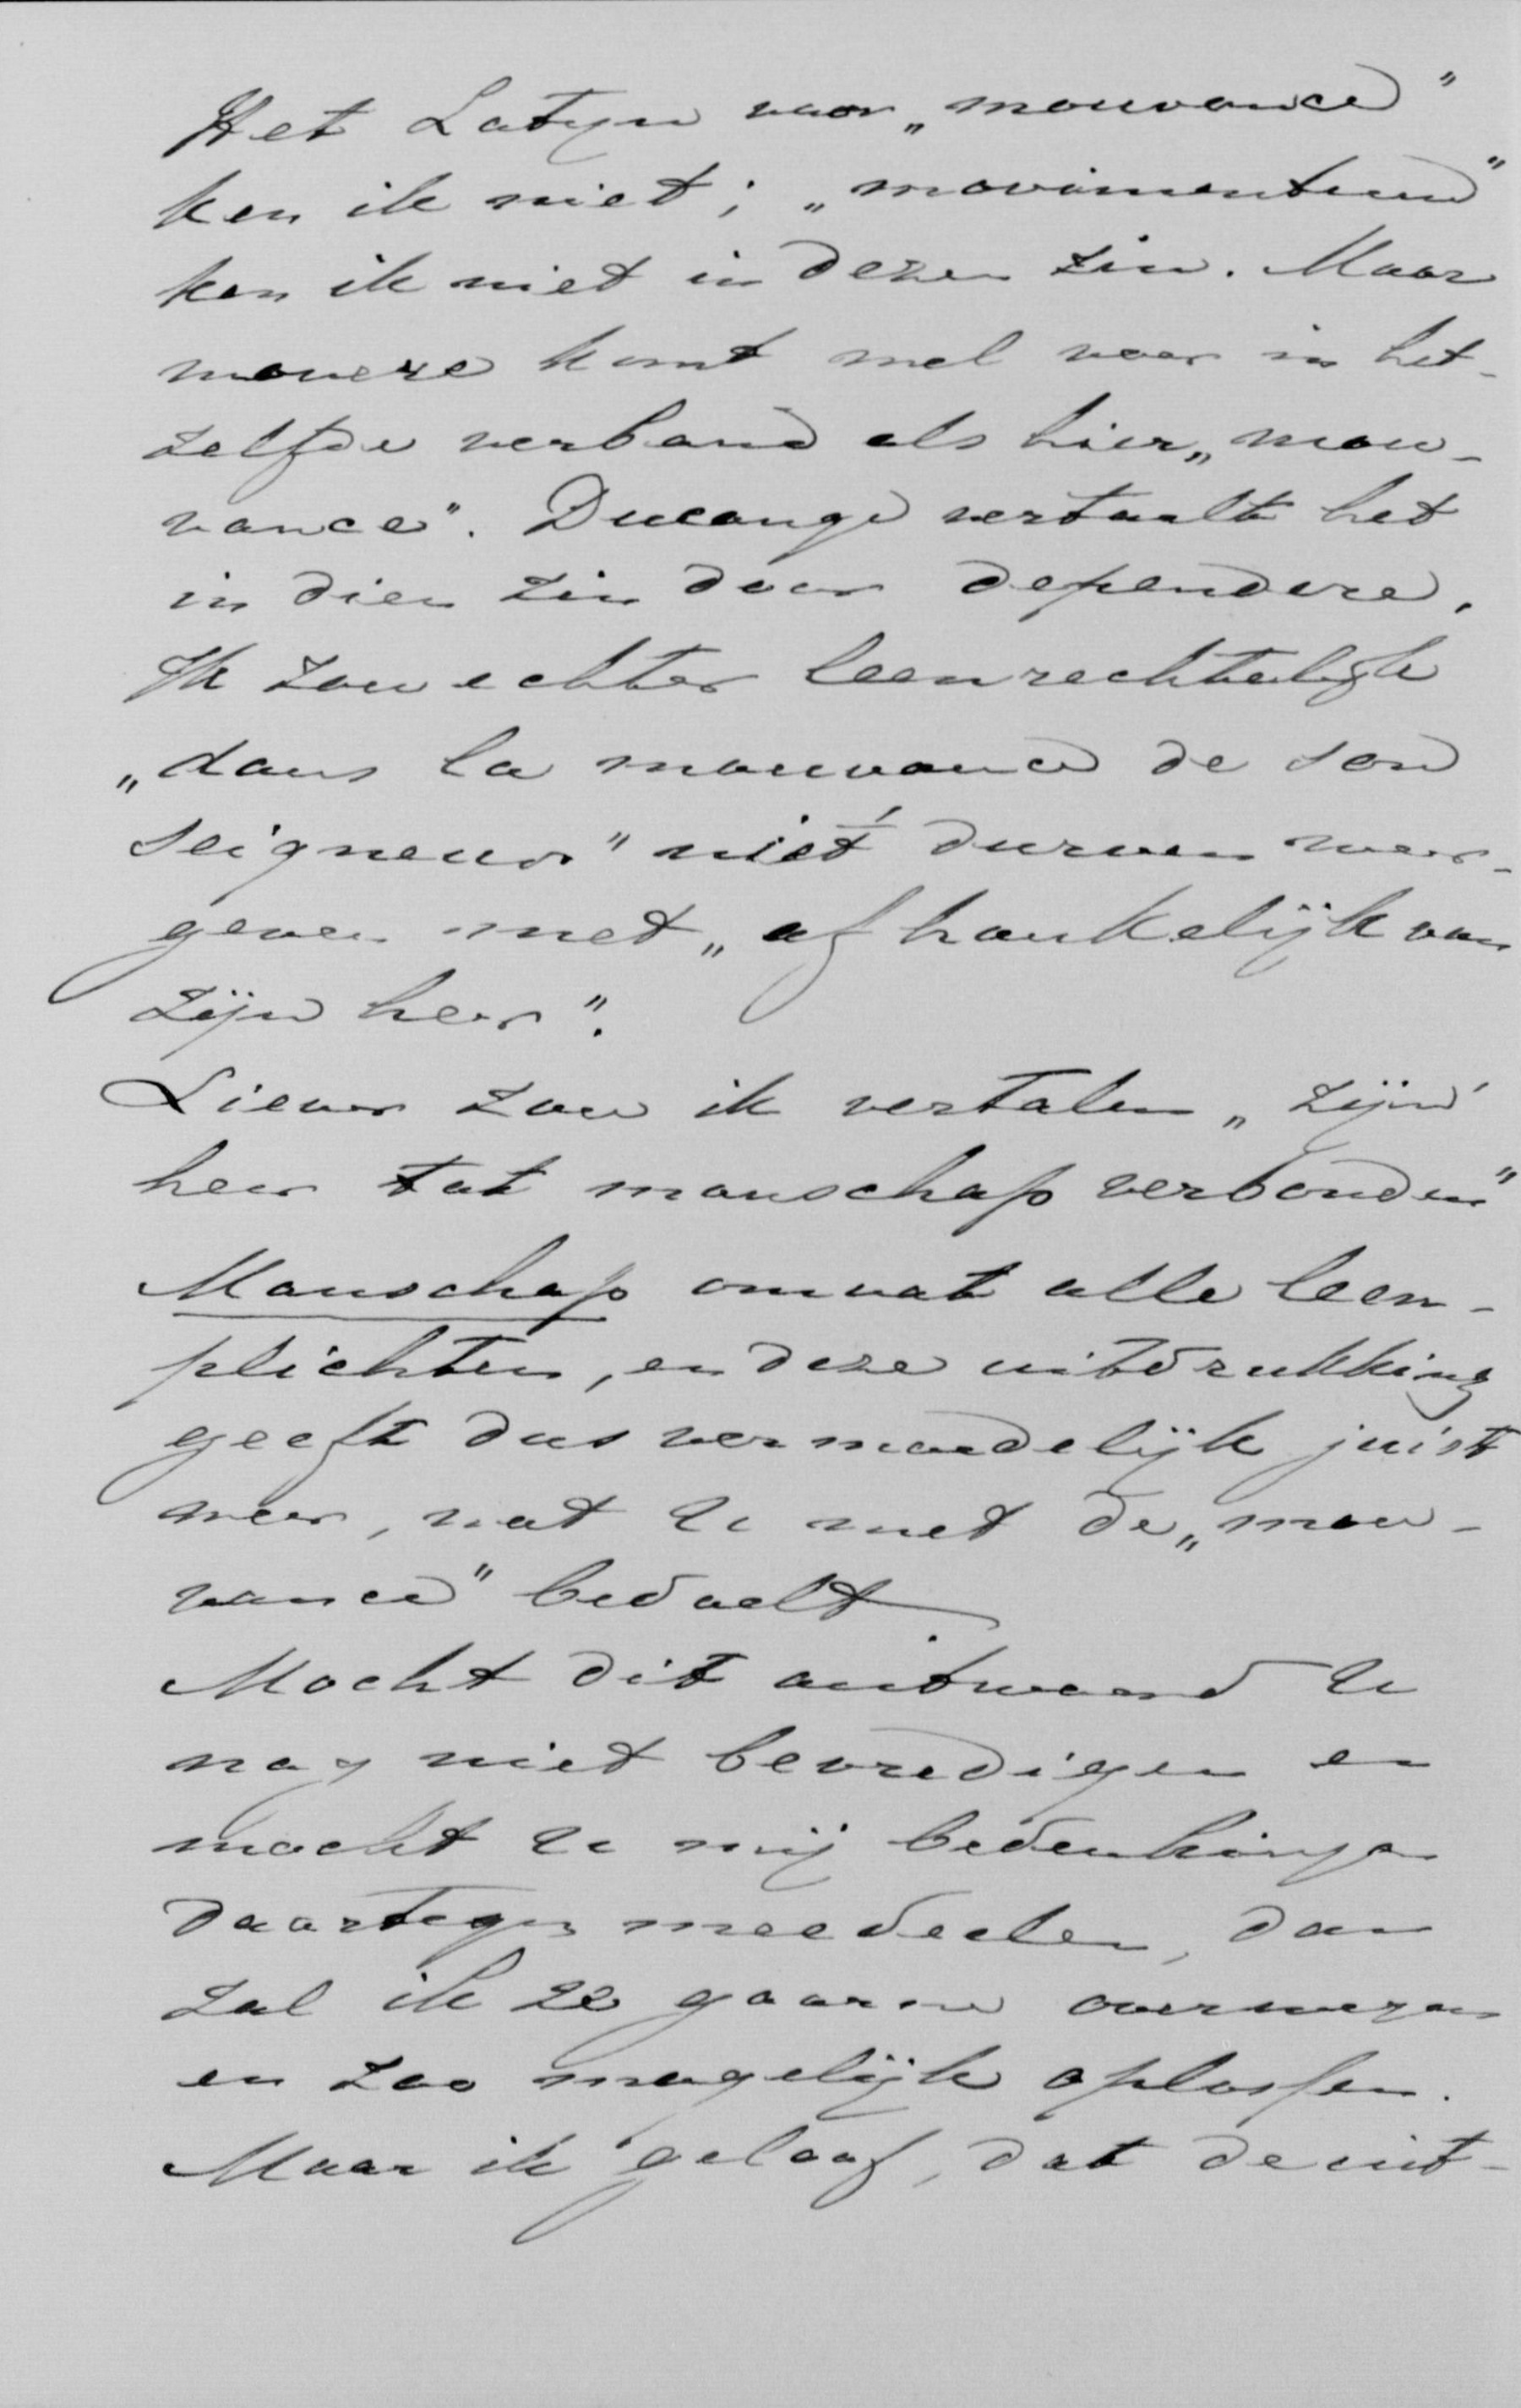 Het Latijn voor „mouvance"
ken ik niet; „movimentum"
ken ik niet in dezen zin. Maar
movere komt wel voor in het-
zelfde verband als hier „mou-
vance". Ducange vertaalt het
in dien zin door dependere.
Ik zou echter leenrechtelijk
„dans la mouvance de son
seigneur" niét durven weer-
geven met „afhankelijk van
zijn heer".
Liever zou ik vertalen „zijn
heer tot manschap verbonden"
Manschap omvat alle leen-
plichten, en deze uitdrukking
geeft dus vermoedelijk juist
weer, wat U met de „mou-
vance" bedoelt.
Mocht dit antwoord U
nog niet bevredigen en
mocht U mij bedenkingen
daartegen meedeelen, dan
zal ik ze gaarne overwegen
en zoo mogelijk oplossen.
Maar ik geloof, dat de uit-